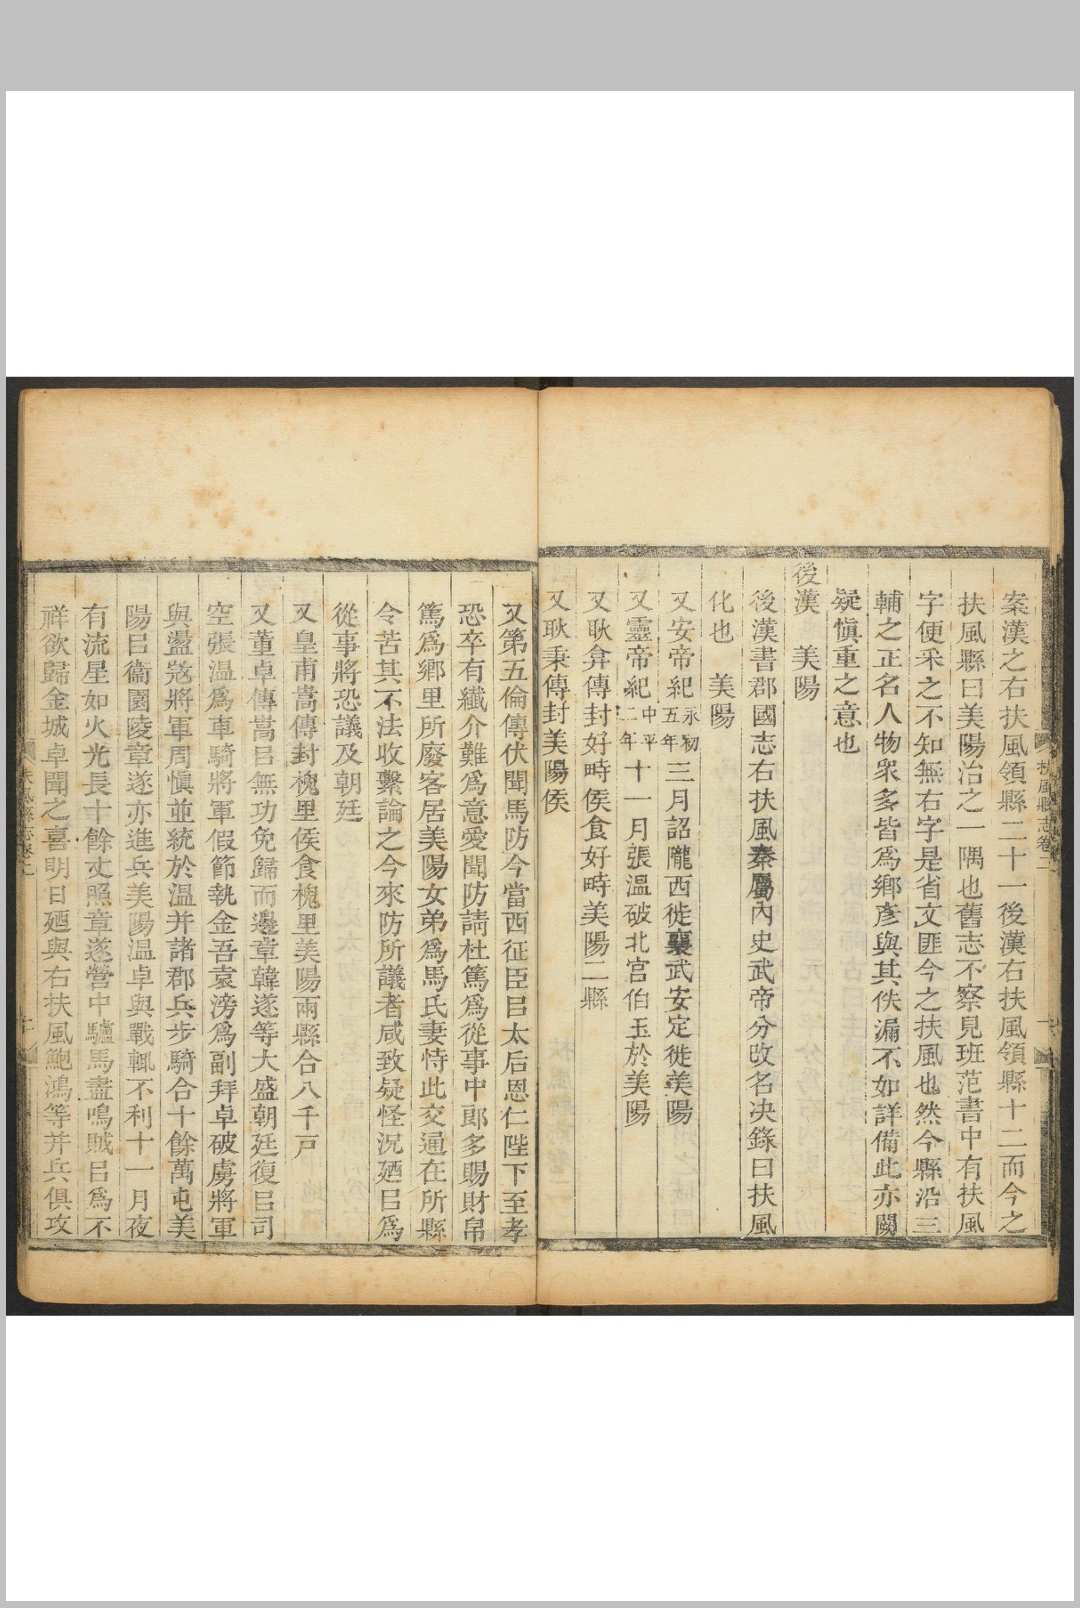 案漢之右扶風領縣二十一後漢右扶風領縣十二而今之
扶風縣曰美陽治之一隅也舊志不察見班范書中有扶風
字便采之不知無右字是省文匪今之扶風也然今縣沿三
輔之正名人物衆多皆爲鄉彥與其佚漏不如詳備此亦闕
疑愼重之意也
後漢　美陽
後漢書郡國志右扶風秦屬內史武帝分改名決錄曰扶風
化也　美陽
又安帝紀永初五年三月詔隴西徙襄武安定徙美陽
又靈帝紀中平二年十一月張溫破北宮伯玉於美陽
又耿弇傳封好畤侯食好畤美陽二縣
又耿秉傳封美陽侯
扶風縣志卷二
又第五倫傳伏聞馬防今當西征臣㠯太后恩仁陛下至孝
恐卒有纖介難爲意愛聞防請杜篤爲從事中郎多賜財帛
篤爲鄉里所廢客居美陽女弟爲馬氏妻恃此交通在所縣
令苦其不法收繫論之今來防所議者咸致疑怪況廼㠯爲
從事將恐議及朝廷
又皇甫嵩傳封槐里侯食槐里美陽兩縣合八千戸
又董卓傳嵩㠯無功免歸而邊章韓遂等大盛朝廷復㠯司
空張溫爲車騎將軍假節執金吾袁滂爲副拜卓破虜將軍
與盪寇將軍周愼並統於溫并諸郡兵步騎合十餘萬屯美
陽㠯衞園陵章遂亦進兵美陽溫卓與戰輒不利十一月夜
有流星如火光長十餘丈照章遂營中驢馬盡鳴賊㠯爲不
祥欲歸金城卓聞之喜明日廼與右扶風鮑鴻等并兵俱攻